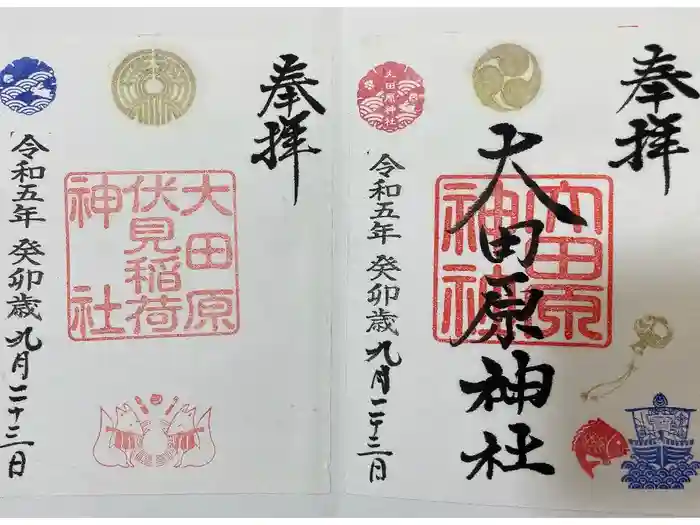 奉拝
大田原
伏見稲荷
神社
令和五年 癸卯歳 九月二十三日
奉拝
大田原神社
大田原
神社
大田原神社
令和五年 癸卯歳 九月二十三日